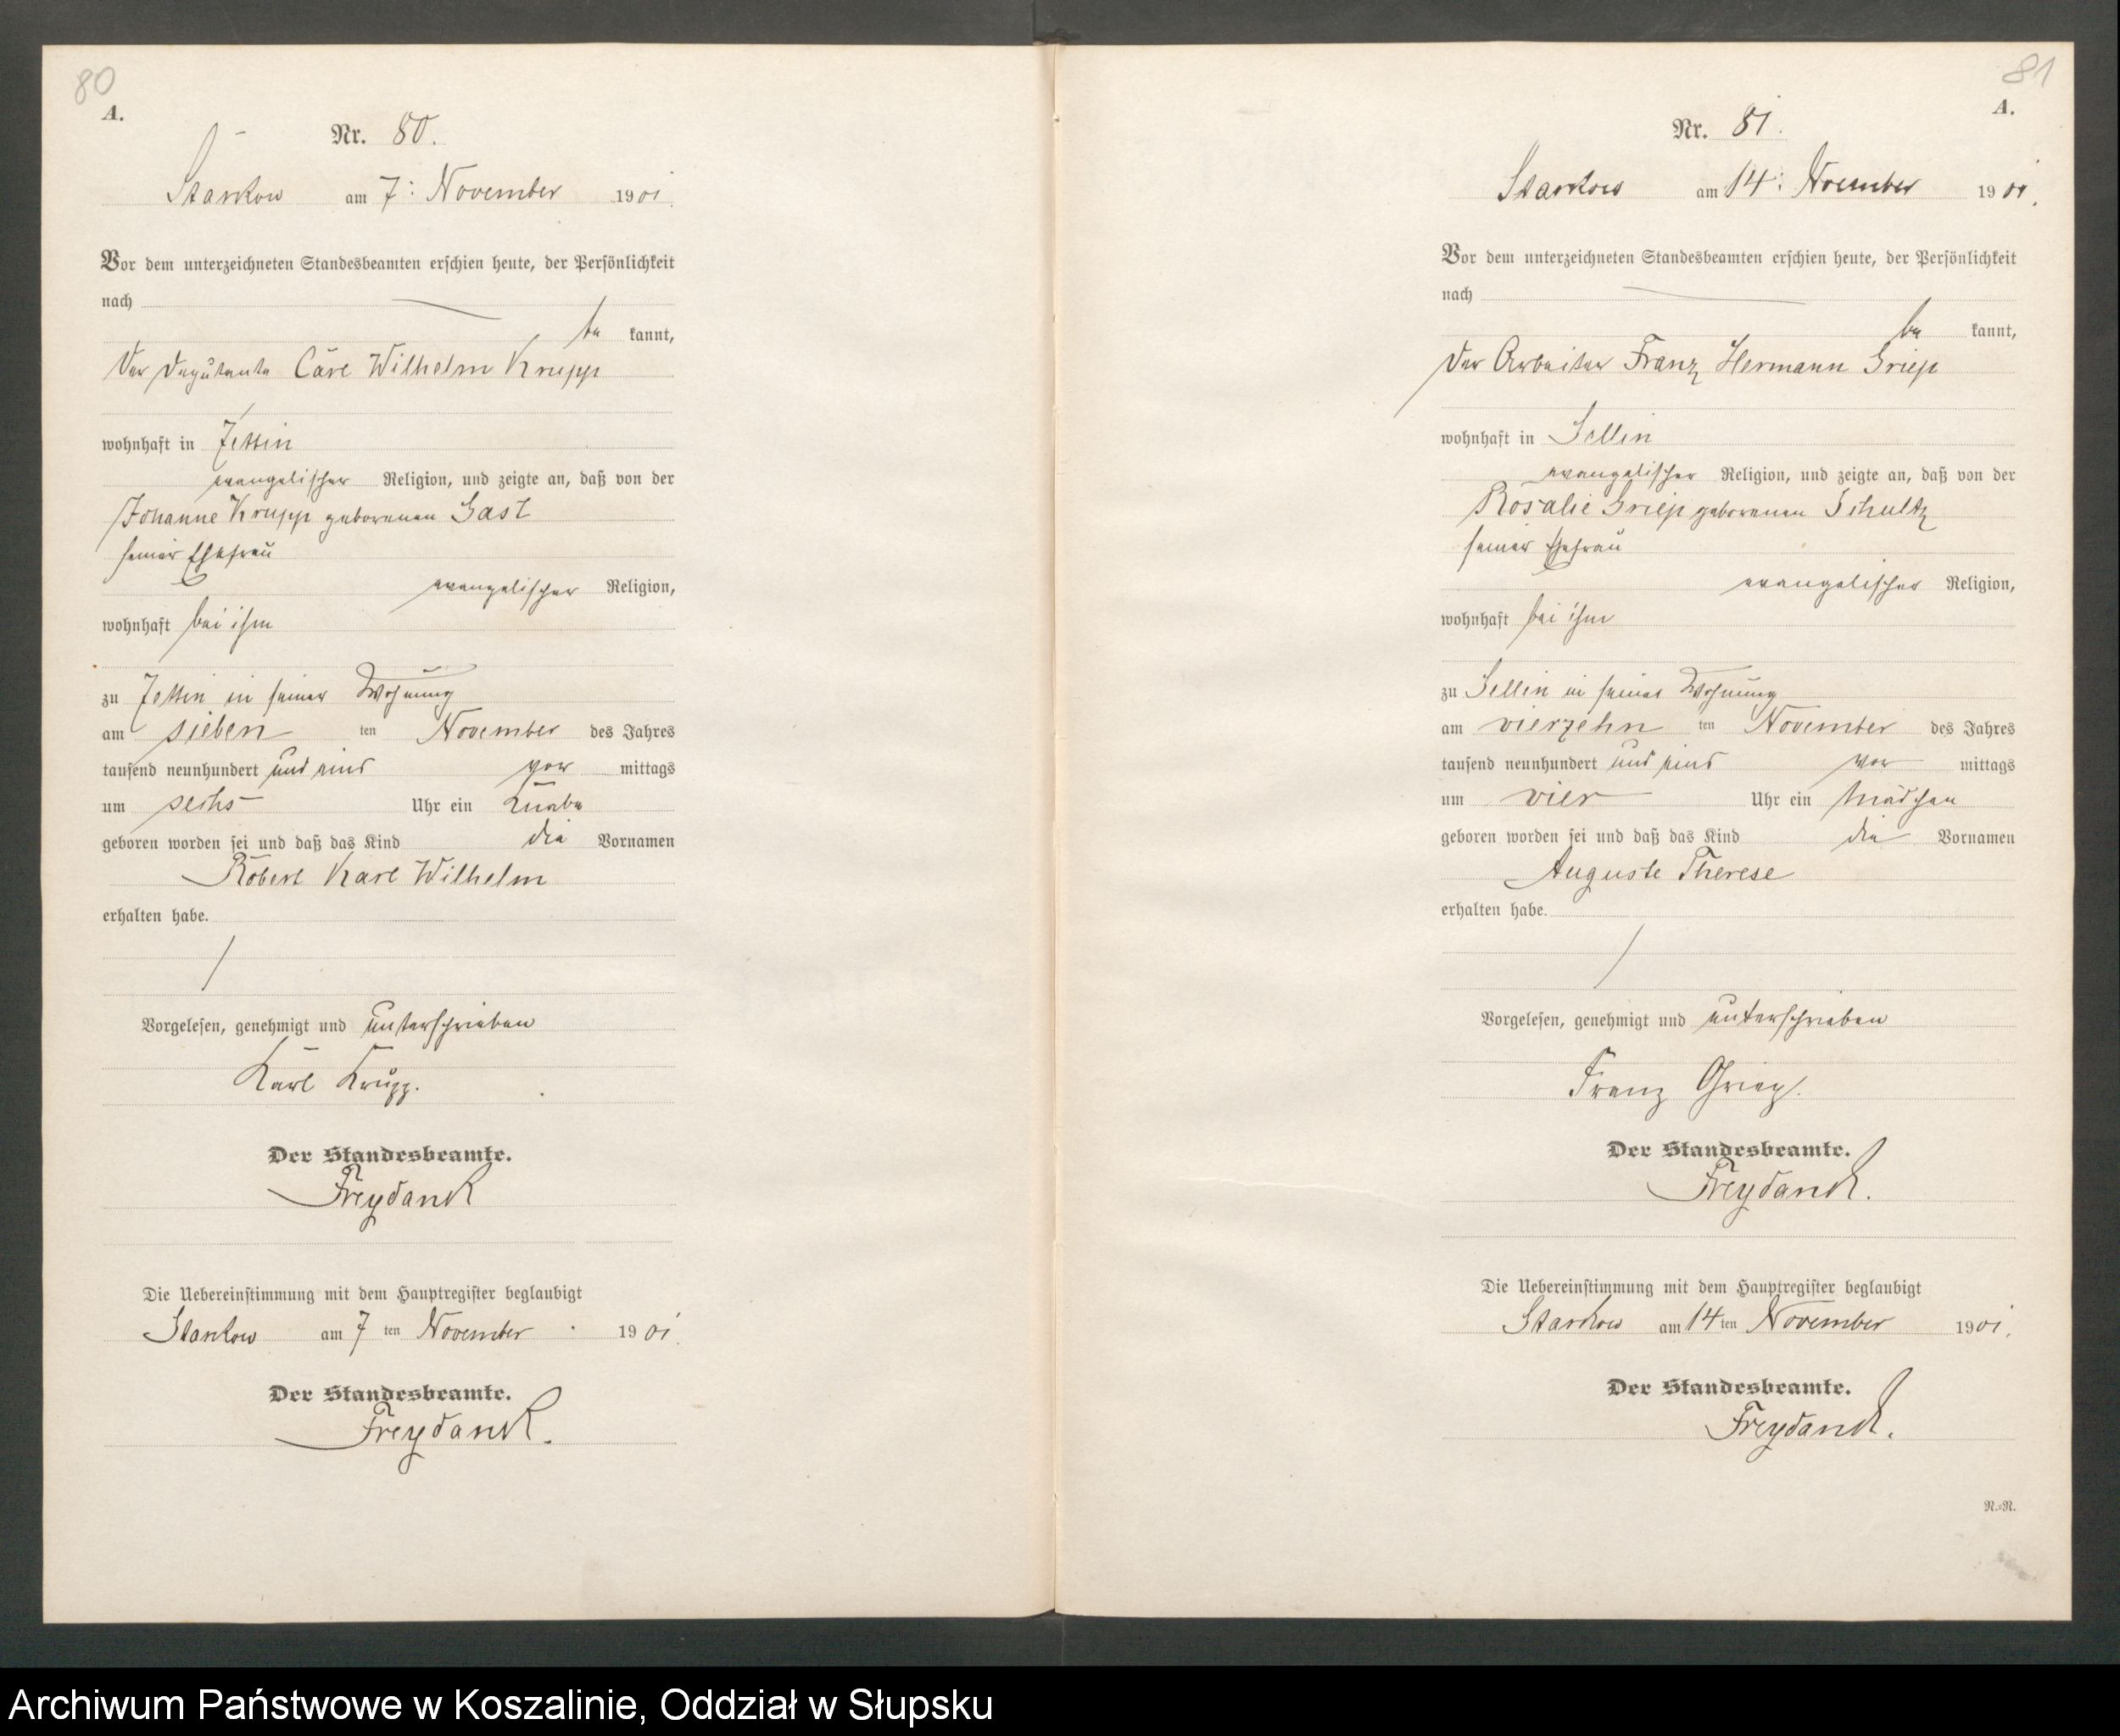 80
A.
Nr. 80.
Starkow am 7. November 1901.
Vor dem unterzeichneten Standesbeamten erschien heute, der Persönlichkeit
nach
be kannt,
der Deputante Carl Wilhelm Krupp
wohnhaft in Jettin
evangelischer Religion, und zeigte an, daß von der
Johanne Krupp geborenen Gast
seiner Ehefrau
evangelischer Religion,
wohnhaft bei ihm
zu Jettin in seiner Wohnung
am sieben ten November des Jahres
tausend neunhundert und eins vor mittags
um sechs Uhr ein Knabe
geboren worden sei und daß das Kind die Vornamen
Robert Karl Wilhelm
erhalten habe.
Vorgelesen, genehmigt und unterschrieben
Karl Krupp.
Der Standesbeamte.
Freydank
Die Uebereinstimmung mit dem Hauptregister beglaubigt
Starkow am 7 ten November 1901.
Der Standesbeamte.
Freydank.
81
A.
Nr. 81.
Starkow am 14. November 1901.
Vor dem unterzeichneten Standesbeamten erschien heute, der Persönlichkeit
nach
be kannt,
der Arbeiter Franz Hermann Griep
wohnhaft in Sellin
evangelischer Religion, und zeigte an, daß von der
Rosalie Griep geborenen Schultz
seiner Ehefrau
evangelischer Religion,
wohnhaft bei ihm
zu Sellin in seiner Wohnung
am vierzehn ten November des Jahres
tausend neunhundert und eins vor mittags
um vier Uhr ein Mädchen
geboren worden sei und daß das Kind die Vornamen
Auguste Therese
erhalten habe.
Vorgelesen, genehmigt und unterschrieben
Franz Griep.
Der Standesbeamte.
Freydank.
Die Uebereinstimmung mit dem Hauptregister beglaubigt
Starkow am 14 ten November 1901.
Der Standesbeamte.
Freydank.
R.=R.
Archiwum Państwowe w Koszalinie, Oddział w Słupsku